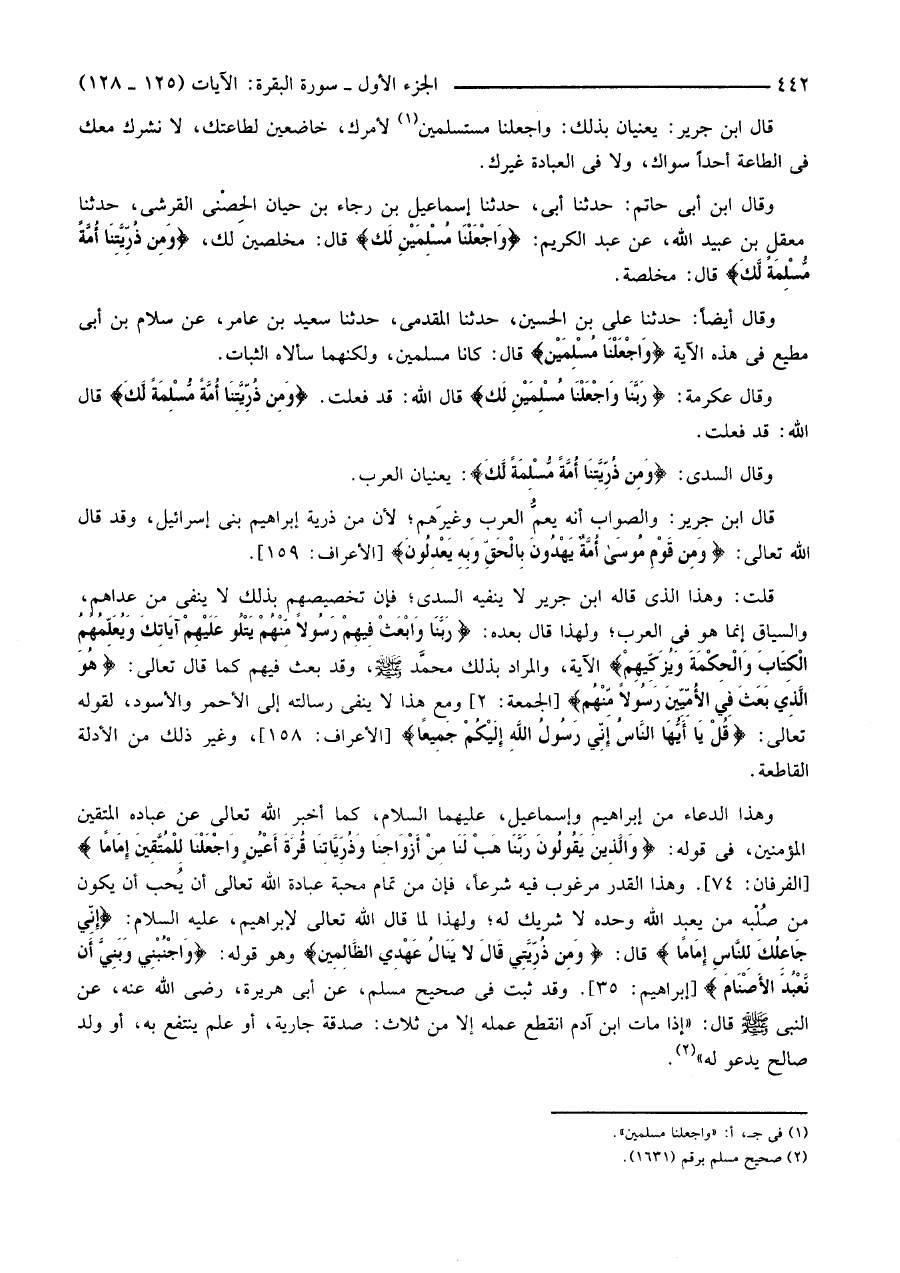 ٤٤٢ ــــــــــ الجزء الأول ـ سورة البقرة: الآيات (١٢٥ ـ ١٢٨)
قال ابن جرير: يعنيان بذلك: واجعلنا مستسلمين(١) لأمرك، خاضعين لطاعتك، لا نشرك معك
فى الطاعة أحداً سواك، ولا فى العبادة غيرك.
وقال ابن أبى حاتم: حدثنا أبى، حدثنا إسماعيل بن رجاء بن حيان الحِصْنى القرشى، حدثنا
معقل بن عبيد الله، عن عبد الكريم: ﴿وَاجْعَلْنَا مُسْلِمَيْنِ لَكَ﴾ قال: مخلصين لك، ﴿وَمِن ذُرِّيَّتِنَا أُمَّةً
مُّسْلِمَةً لَّكَ﴾ قال: مخلصة.
وقال أيضاً: حدثنا على بن الحسين، حدثنا المقدمى، حدثنا سعيد بن عامر، عن سلام بن أبى
مطيع فى هذه الآية ﴿وَاجْعَلْنَا مُسْلِمَيْنِ﴾ قال: كانا مسلمين، ولكنهما سألاه الثبات.
وقال عكرمة: ﴿ رَبَّنَا وَاجْعَلْنَا مُسْلِمَيْنِ لَكَ﴾ قال الله: قد فعلت. ﴿وَمِن ذُرِّيَّتِنَا أُمَّةً مُّسْلِمَةً لَّكَ﴾ قال
الله: قد فعلت.
وقال السدى: ﴿وَمِن ذُرِّيَّتِنَا أُمَّةً مُّسْلِمَةً لَّكَ﴾: يعنيان العرب.
قال ابن جرير: والصواب أنه يعمُّ العرب وغيرَهم؛ لأن من ذرية إبراهيم بنى إسرائيل، وقد قال
الله تعالى: ﴿ وَمِن قَوْمِ مُوسَىٰ أُمَّةٌ يَهْدُونَ بِالْحَقِّ وَبِهِ يَعْدِلُونَ﴾ [الأعراف: ١٥٩].
قلت: وهذا الذى قاله ابن جرير لا ينفيه السدى؛ فإن تخصيصهم بذلك لا ينفى من عداهم،
والسياق إنما هو فى العرب؛ ولهذا قال بعده: ﴿ رَبَّنَا وَابْعَثْ فِيهِمْ رَسُولاً مِّنْهُمْ يَتْلُو عَلَيْهِمْ آيَاتِكَ وَيُعَلِّمُهُمُ
الْكِتَابَ وَالْحِكْمَةَ وَيُزَكِّيهِمْ﴾ الآية، والمراد بذلك محمَّد ﷺ، وقد بعث فيهم كما قال تعالى: ﴿ هُوَ
الَّذِي بَعَثَ فِي الأُمِّيِّينَ رَسُولاً مِّنْهُم﴾ [الجمعة: ٢] ومع هذا لا ينفى رسالته إلى الأحمر والأسود، لقوله
تعالى: ﴿ قُلْ يَا أَيُّهَا النَّاسُ إِنِّي رَسُولُ اللَّهِ إِلَيْكُمْ جَمِيعًا﴾ [الأعراف: ١٥٨]، وغير ذلك من الأدلة
القاطعة.
وهذا الدعاء من إبراهيم وإسماعيل، عليهما السلام، كما أخبر الله تعالى عن عباده المتقين
المؤمنين، فى قوله: ﴿ وَالَّذِينَ يَقُولُونَ رَبَّنَا هَبْ لَنَا مِنْ أَزْوَاجِنَا وَذُرِّيَّاتِنَا قُرَّةَ أَعْيُنٍ وَاجْعَلْنَا لِلْمُتَّقِينَ إِمَامًا ﴾
[الفرقان: ٧٤]. وهذا القدر مرغوب فيه شرعاً، فإن من تمام محبة عبادة الله تعالى أن يُحب أن يكون
من صُلْبه من يعبد الله وحده لا شريك له؛ ولهذا لما قال الله تعالى لإبراهيم، عليه السلام: ﴿إِنِّي
جَاعِلُكَ لِلنَّاسِ إِمَامًا ﴾ قال: ﴿ وَمِن ذُرِّيَّتِي قَالَ لا يَنَالُ عَهْدِي الظَّالِمِينَ﴾ وهو قوله: ﴿وَاجْنُبْنِي وَبَنِيَّ أَن
نَّعْبُدَ الأَصْنَامَ ﴾ [إبراهيم: ٣٥]. وقد ثبت فى صحيح مسلم، عن أبى هريرة، رضى الله عنه، عن
النبى ﷺ قال: «إذا مات ابن آدم انقطع عمله إلا من ثلاث: صدقة جارية، أو علم ينتفع به، أو ولد
صالح يدعو له»(٢).
(١) فى جـ، أ: «واجعلنا مسلمين».
(٢) صحيح مسلم برقم (١٦٣١).